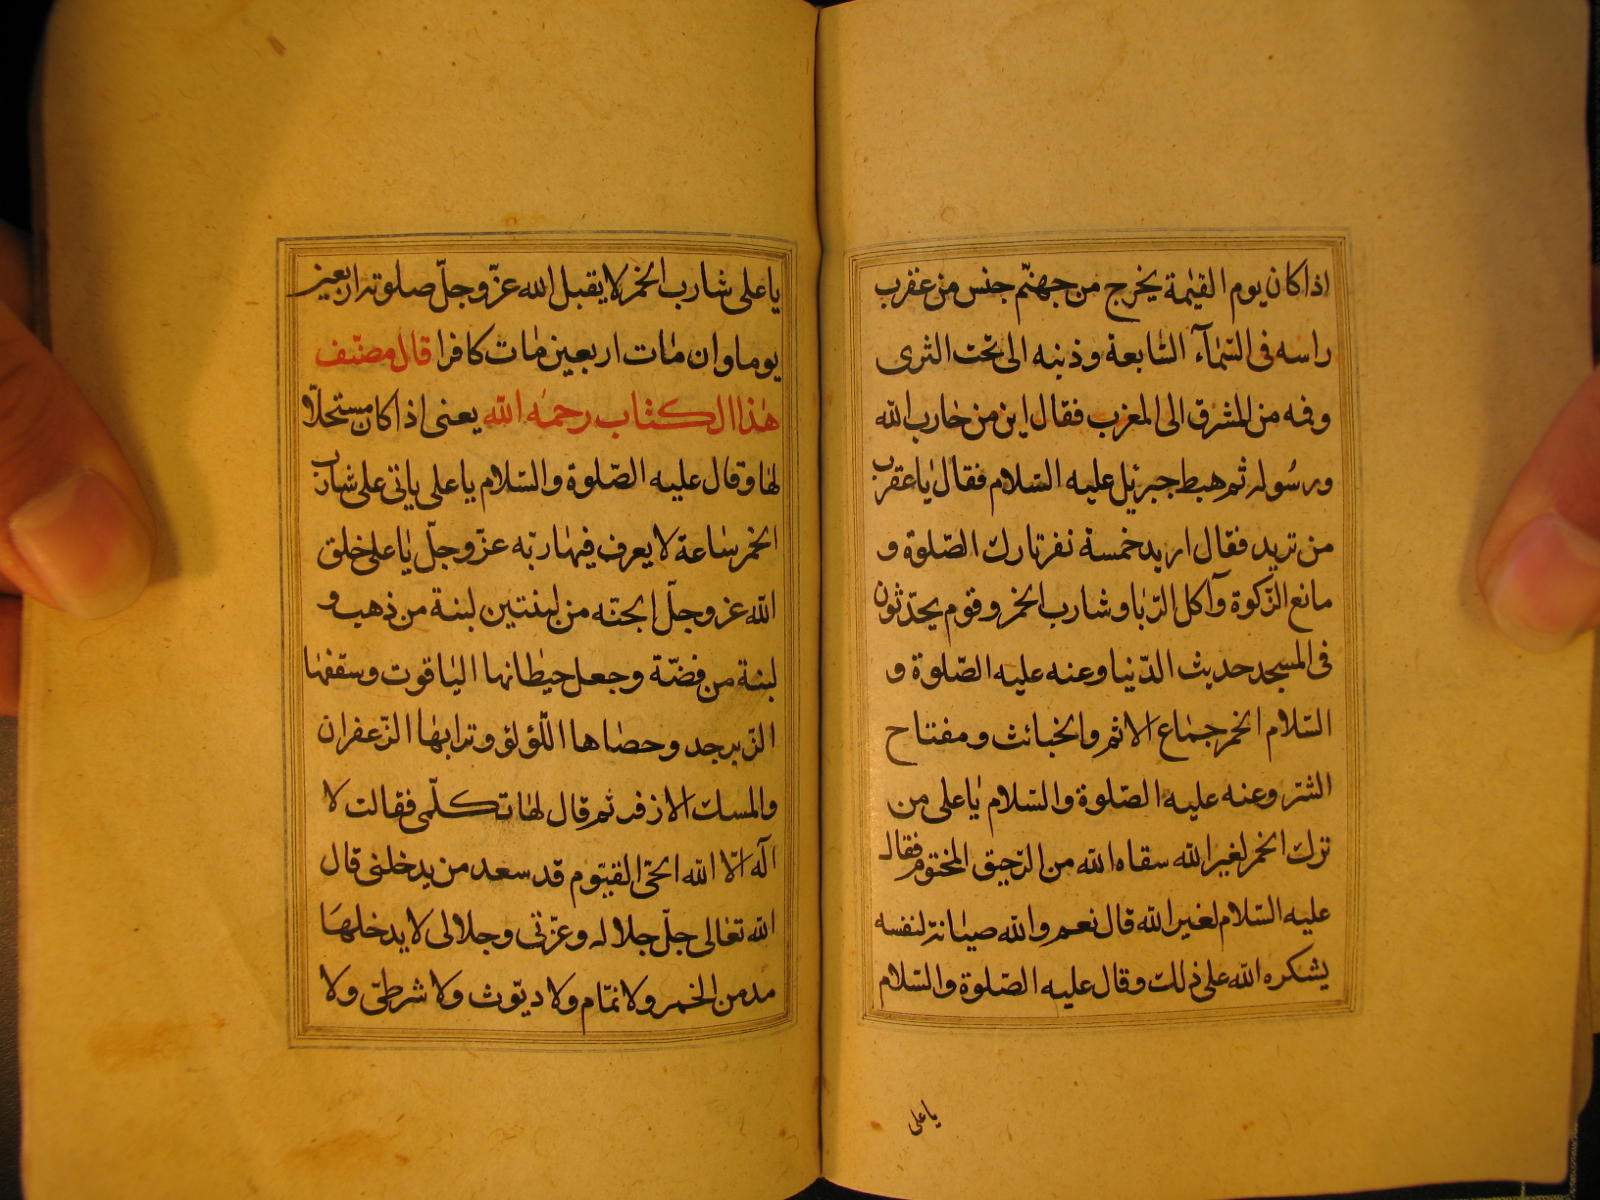 اذا كان يوم القيمة يخرج من جهنم جنس من عقرب
راسه فى السمآء السابعة وذنبه الى تحت الثرى
وفمه من المشرق الى المغرب فقال اين من حارب الله
ورسوله ثم هبط جبرئيل عليه السلام فقال يا عقرب
من تريد فقال اريد خمسة نفر تارك الصلوة و
مانع الزكوة وآكل الربا وشارب الخمر وقوم يحدّثون
فى المسجد حديث الدّنيا وعنه عليه الصّلوة و
السّلام الخمر جماع الاثم والخبائث ومفتاح
الشّر وعنه عليه الصّلوة والسّلام يا على من
ترك الخمر لغير الله سقاه الله من الرّحيق المختوم فقال
عليه السّلام لغير الله قال نعم والله صيانة لنفسه
يشكره الله على ذلك وقال عليه الصّلوة والسّلام
يا على
يا على شارب الخمر لا يقبل الله عزّ وجلّ صلوته اربعين
يوما وان مات اربعين مات كافرا قال مصنّف
هذا الكتاب رحمه الله يعنى اذا كان مستحلّا
لها وقال عليه الصّلوة والسّلام يا على ياتى على شارب
الخمر ساعة لا يعرف فيها ربّه عزّ وجلّ يا على خلق
الله عز وجلّ الجنّه من لبنتين لبنة من ذهب و
لبنة من فضّة وجعل حيطانها الياقوت وسقفها
الزّبرجد وحصاها اللّؤلؤ وترابها الزّعفران
والمسك الاذفر ثم قال لها تكلّمى فقالت لا
اله الّا الله الحىّ القيّوم قد سعد من يدخلنى قال
الله تعالى جلّ جلاله وعزّتى وجلالى لا يدخلها
مدمن الخمر ولا نمّام ولا ديّوث ولا شرطىّ ولا